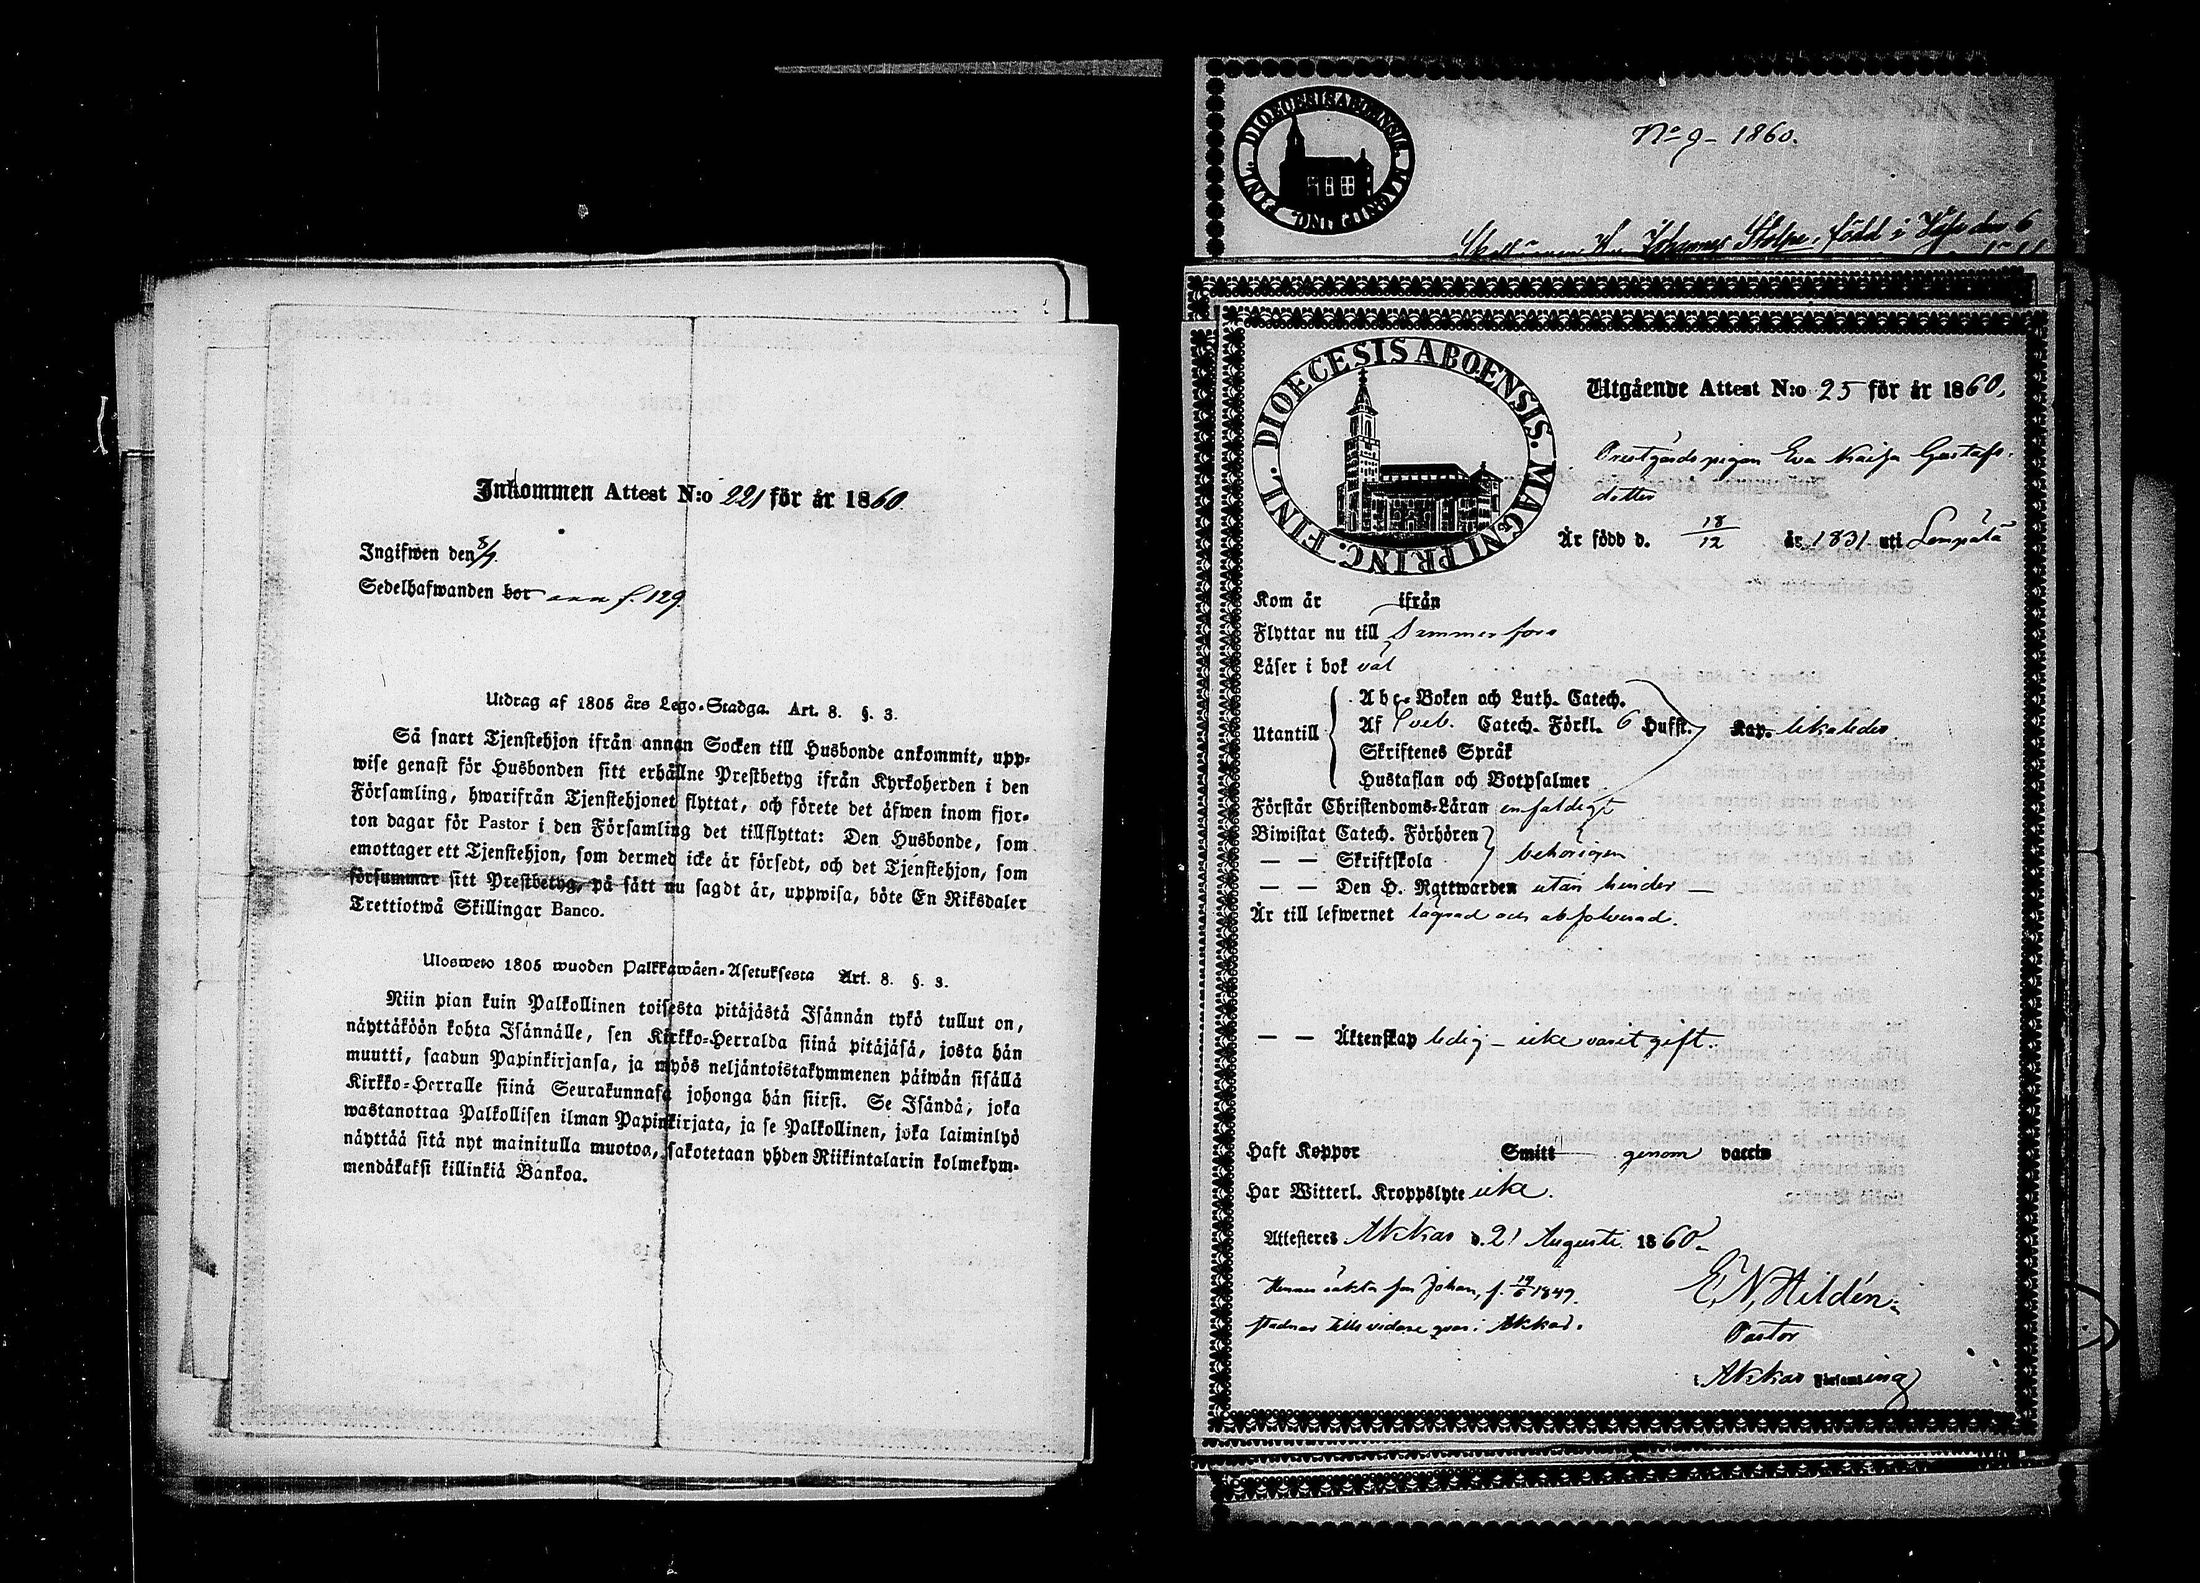 Inkommen Attest N:o 221 för år 1860.
Ingifwen den 8/9.
Sedelhafwanden bor ann f. 129.
Utdrag af 1805 års Lego-Stadga. Art. 8. §. 3.
Så snart Tjenstehjon ifrån annan Socken till Husbonde ankommit, upp-
wise genast för Husbonden sitt erhållne Prestbetyg ifrån Kyrkoherden i den
Församling, hwarifrån Tjenstehjonet flyttat, och förete det äfwen inom fjor-
ton dagar för Pastor i den Församling det tillflyttat: Den Husbonde, som
emottager ett Tjenstehjon, som dermed icke är försedt, och det Tjenstehjon, som
försummar sitt Prestbetyg, på sätt nu sagdt är, uppwisa, böte En Riksdaler
Trettiotwå Skillingar Banco.
Ulosweto 1805 wuoden Palkkawäen-Asetuksesta Art. 8. §. 3.
Niin pian kuin Palkollinen toisesta pitäjästä Isännän tykö tullut on,
näyttäköön kohta Isännälle, sen Kirkko-Herralda siinä pitäjäsä, josta hän
muutti, saadun Papinkirjansa, ja myös neljäntoistakymmenen päiwän sisällä
Kirkko-Herralle siinä Seurakunnasa johonga hän siirsi. Se Isändä, joka
wastanottaa Palkollisen ilman Papinkirjata, ja se Palkollinen, joka laiminlyö
näyttää sitä nyt mainitulla muotoa, sakotetaan yhden Riikintalarin kolmekym-
mendäkaksi killinkiä Bankoa.
FINL. DIOECESIS ABOENSIS. MAGNI PRINC.
No 9 - 1860.
Johannes Stolpe, född i den 6
FINL. DIOECESIS ABOENSIS. MAGNI PRINC.
Utgående Attest N:o 25 för år 1860.
Prestgårds pigan Eva Kaisa Gustafs-
dotter
Är född d. 18/12 år 1831 uti Lempälä
Kom år ifrån
Flyttar nu till Tammerfors
Läser i bok väl
Utantill
Abc-Boken och Luth. Catech.
Af Sveb. Catech. Förkl. 6 Hufst. Kap. likaledes
Skriftenes Språk
Hustaflan och Botpsalmer
Förstår Christendoms-Läran enfaldigt
Biwistat Catech. Förhören
— — Skriftskola behörigen
— — Den H. Nattwarden utan hinder —
Är till lefwernet lagrad och absolverad.
— — Äktenskap ledig - icke varit gift.
Haft Koppor Smitt genom vaccin
Har Witterl. Kroppslyte icke.
Attesteres Akkas d. 21 Augusti 1860.
Hennes oäkta son Johan, f. 19/6 1849.
stadnar tills vidare qvar i Akkas.
E. N. Hildén.
Pastor
i Akkas Församling